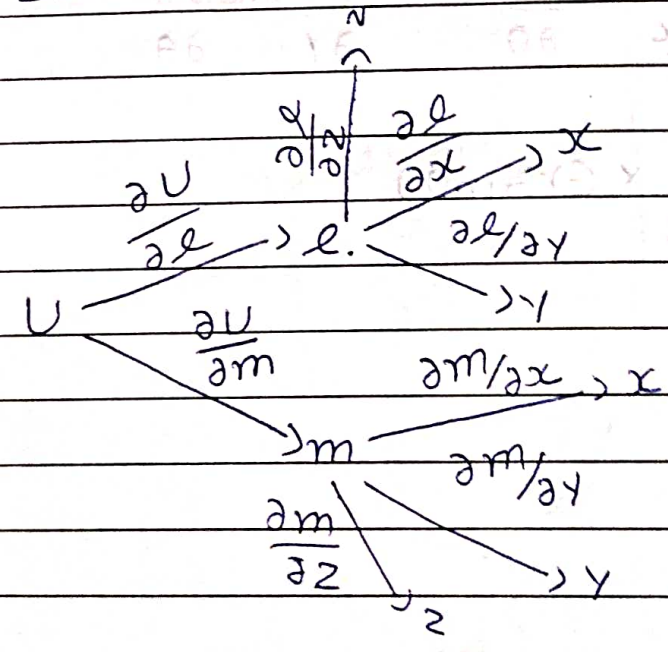 z
∂l/∂z ∂l/∂x x
∂U/∂l l. ∂l/∂y
U y
∂U/∂m
∂m/∂x x
m ∂m/∂y
∂m/∂z
y
z